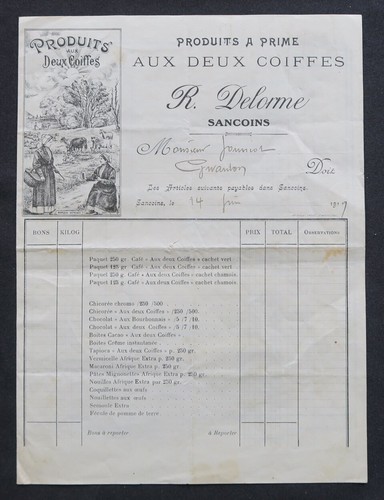 PRODUITS
AUX
Deux Coiffes
PRODUITS A PRIME
AUX DEUX COIFFES
R. Delorme
SANCOINS
Monsieur
Doit
Les Articles suivants payables dans Sancoins.
Sancoins, le 14 juin 19
BONS KILOG PRIX TOTAL OBSERVATIONS
Paquet 250 gr. Café « Aux deux Coiffes » cachet vert
Paquet 125 gr. Café « Aux deux Coiffes » cachet vert
Paquet 250 gr. Café « Aux deux Coiffes » cachet chamois.
Paquet 125 gr. Café « Aux deux Coiffes » cachet chamois.
Chicorée chromo /250 /500
Chicorée « Aux deux Coiffes » /250 /500.
Chocolat « Aux Bourbonnais » /5 /7 /10.
Chocolat « Aux deux Coiffes » /5 /7 /10.
Boites Cacao « Aux deux Coiffes »
Boites Crème instantanée
Tapioca « Aux deux Coiffes » p. 250 gr.
Vermicelle Afrique Extra p. 250 gr.
Macaroni Afrique Extra p. 250 gr.
Pâtes Mignonettes Afrique Extra p. 250 gr.
Nouilles Afrique Extra par 250 gr.
Coquillettes aux œufs
Nouillettes aux œufs
Semoule Extra
Fécule de pomme de terre
Bons à reporter à Reporter